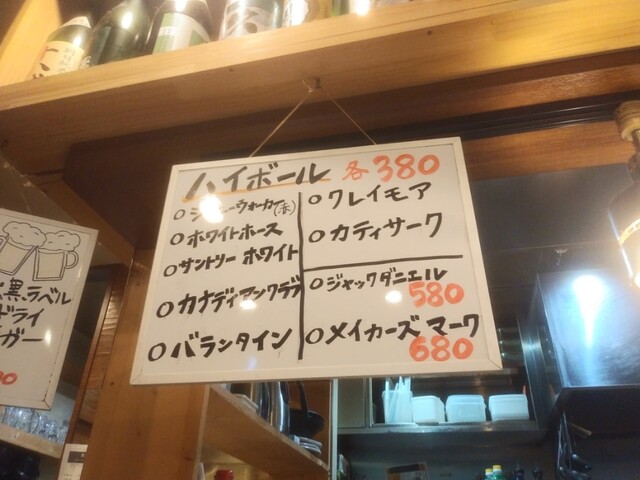 ハイボール 各380
○ジョニーウォーカー(赤)
○ホワイトホース
○サントリー ホワイト
○カナディアンクラブ
○バランタイン
○クレイモア
○カティサーク
○ジャックダニエル
580
○メイカーズ マーク
680
黒ラベル
ドライ
ガー